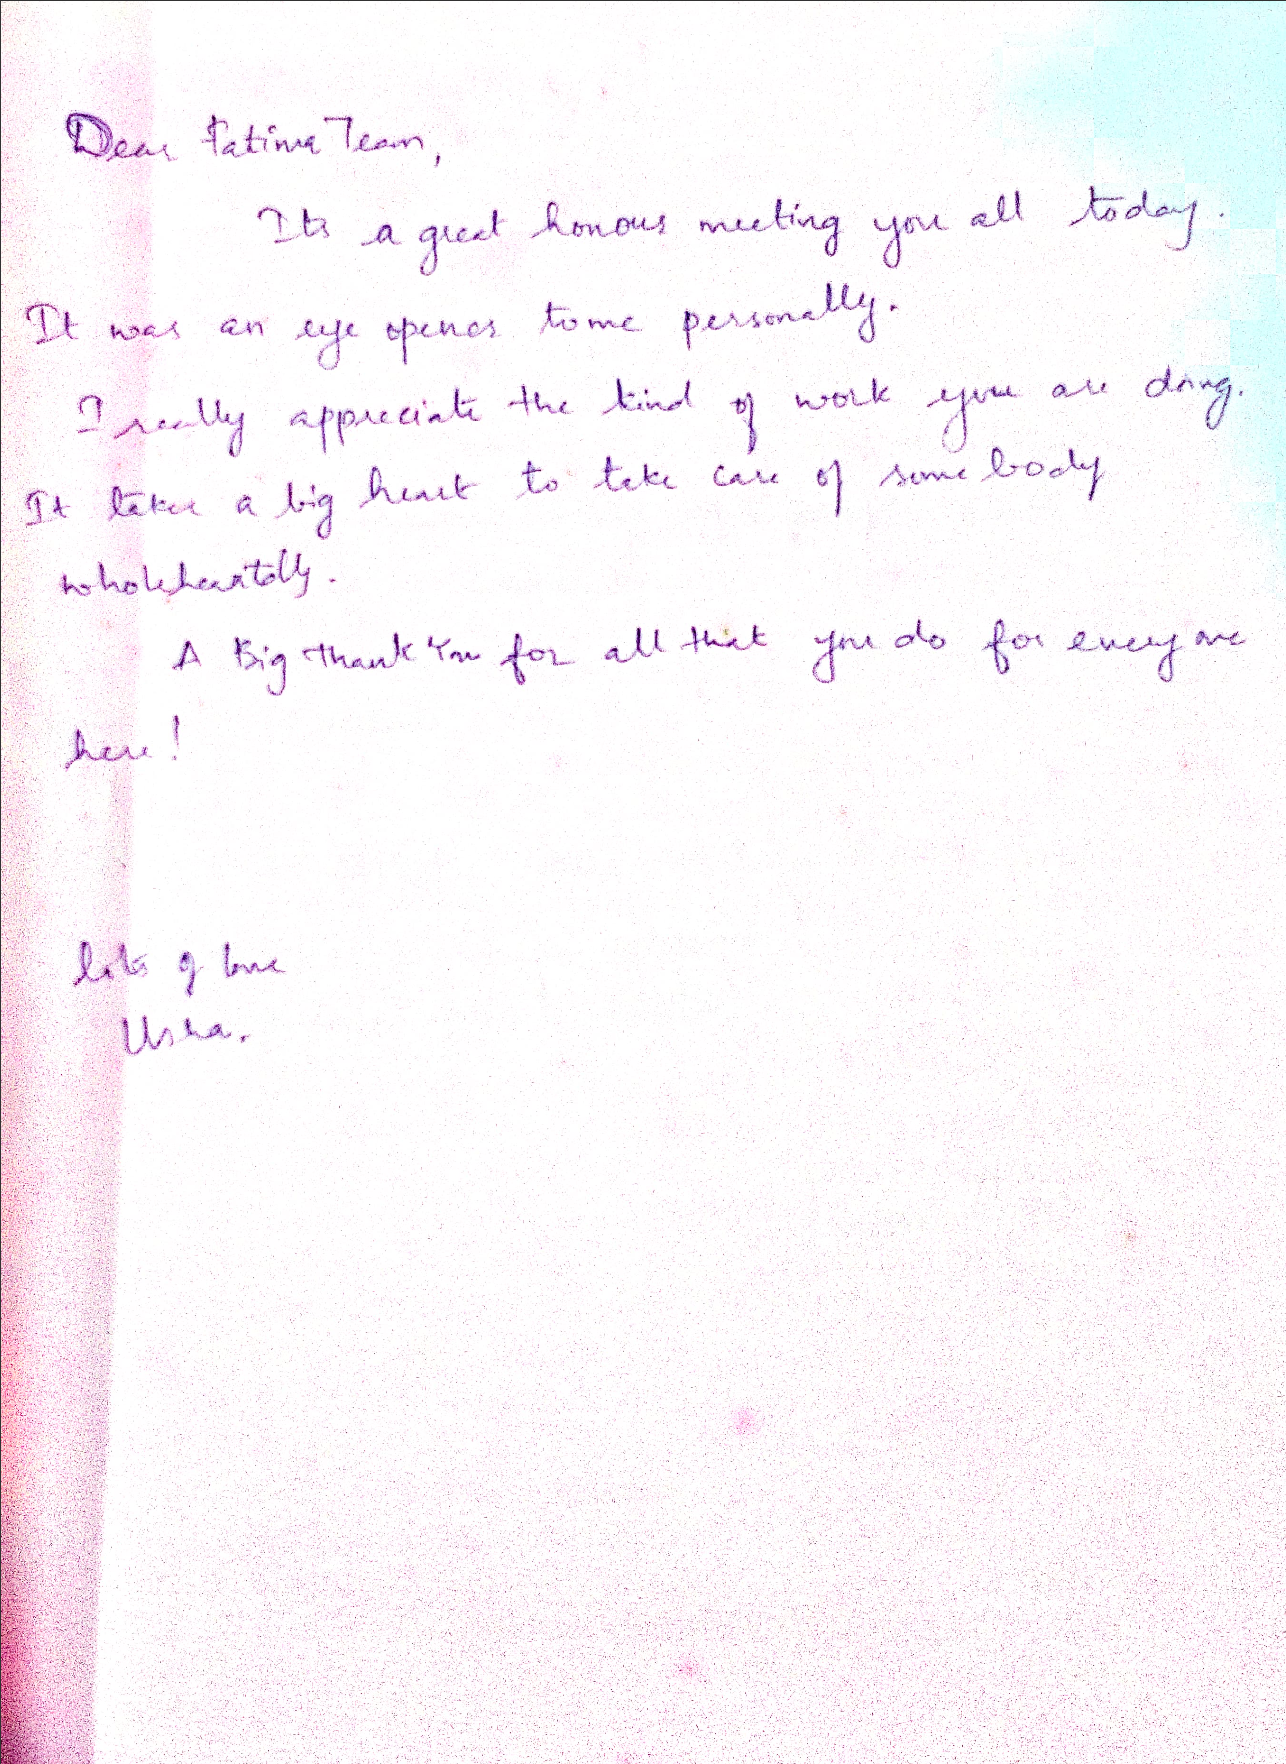 Dear Fatima Team,
Its a great honour meeting you all today.
It was an eye opener to me personally.
I really appreciate the kind of work you are doing.
It takes a big heart to take care of somebody
wholeheartdly.
A Big Thank You for all that you do for everyone
here!
lots of love
Usha.